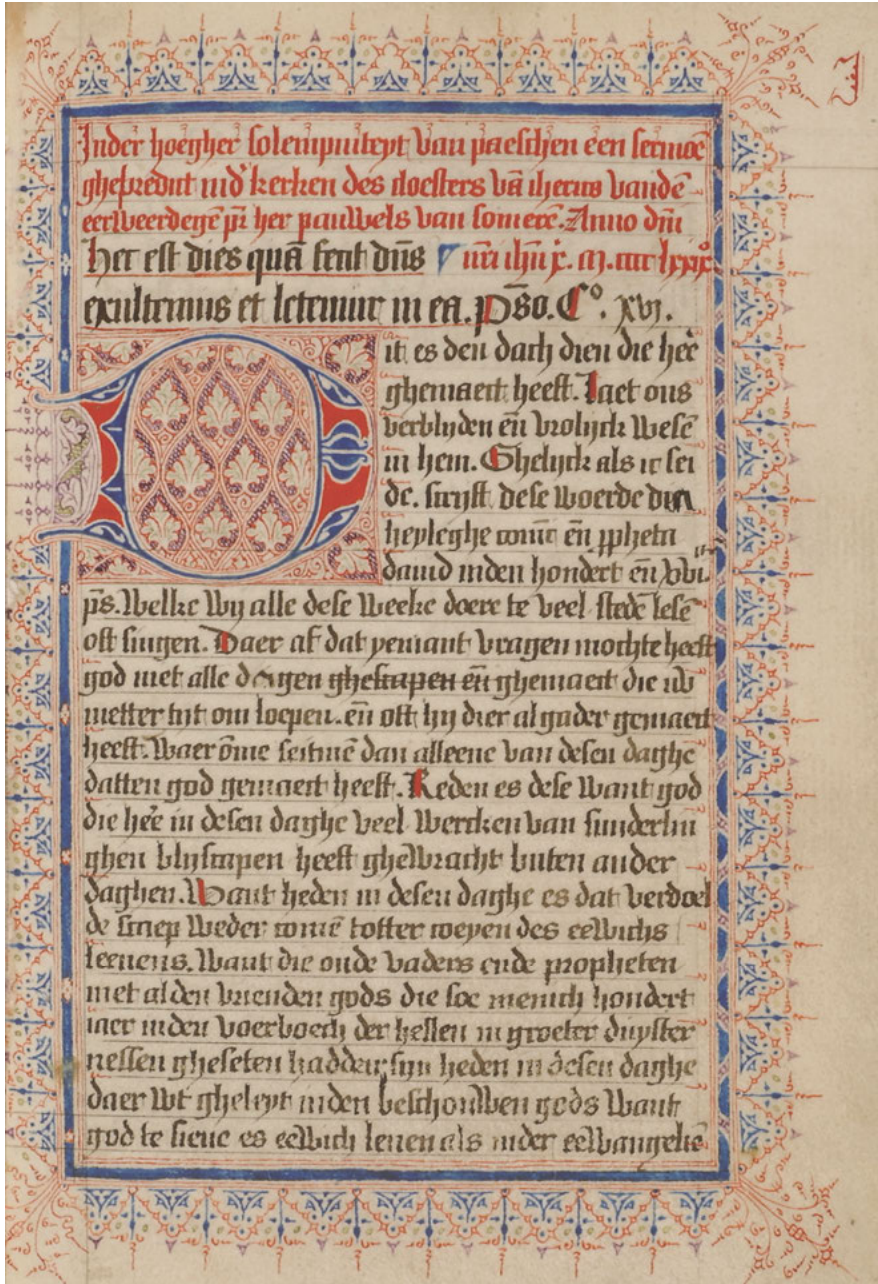 Inder hoegher solempniteyt van paeschen een sermoē
ghepredict ind' kerken des cloesters vā iherus̄ vandē
eerweerdegē pr̄ her pauwels van somerē. Anno dn̄i
Hec est dies quā fecit dn̄s
exultemus et letemur in ea. ps̄o. Cᵒ. xvj.
it es den dach dien die hēe
ghemaect heeft. Laet ons
verblyden en̄ vrolijck wesē
in hem. Ghelijck als ic sei
de. scrijft dese woerde die
heyleghe coninc en̄ ꝓpheta
dauid inden hondert en̄ xvi.
ps̄. Welke wij alle dese weeke doere te veel stedē lesē
oft singen. Daer af dat yemant vragen mochte heeft
god niet alle dagen ghescapen en̄ ghemaect die
metter tijt om loepen. en̄ oft hij dier al gader gemaect
heeft. Waer ōme seitmē dan alleene van desen daghe
datten god gemaect heeft. Reden es dese want god
die hēe in desen daghe veel wercken van sunderlin
ghen blijscapen heeft ghewracht buten ander
daghen. Want heden in desen daghe es dat verdoel
de scaep weder comē totter weyen des eewichs
leeuens. Want die oude vaders ende propheten
met alden vrienden gods die soe menich hondert
iaer inden voerboech der hellen in groeter duyster
nessen gheseten hadden, sijn heden in desen daghe
daer wt gheleyt inden beschouwen gods want
god te siene es eewich leuen als inder eewangeliē